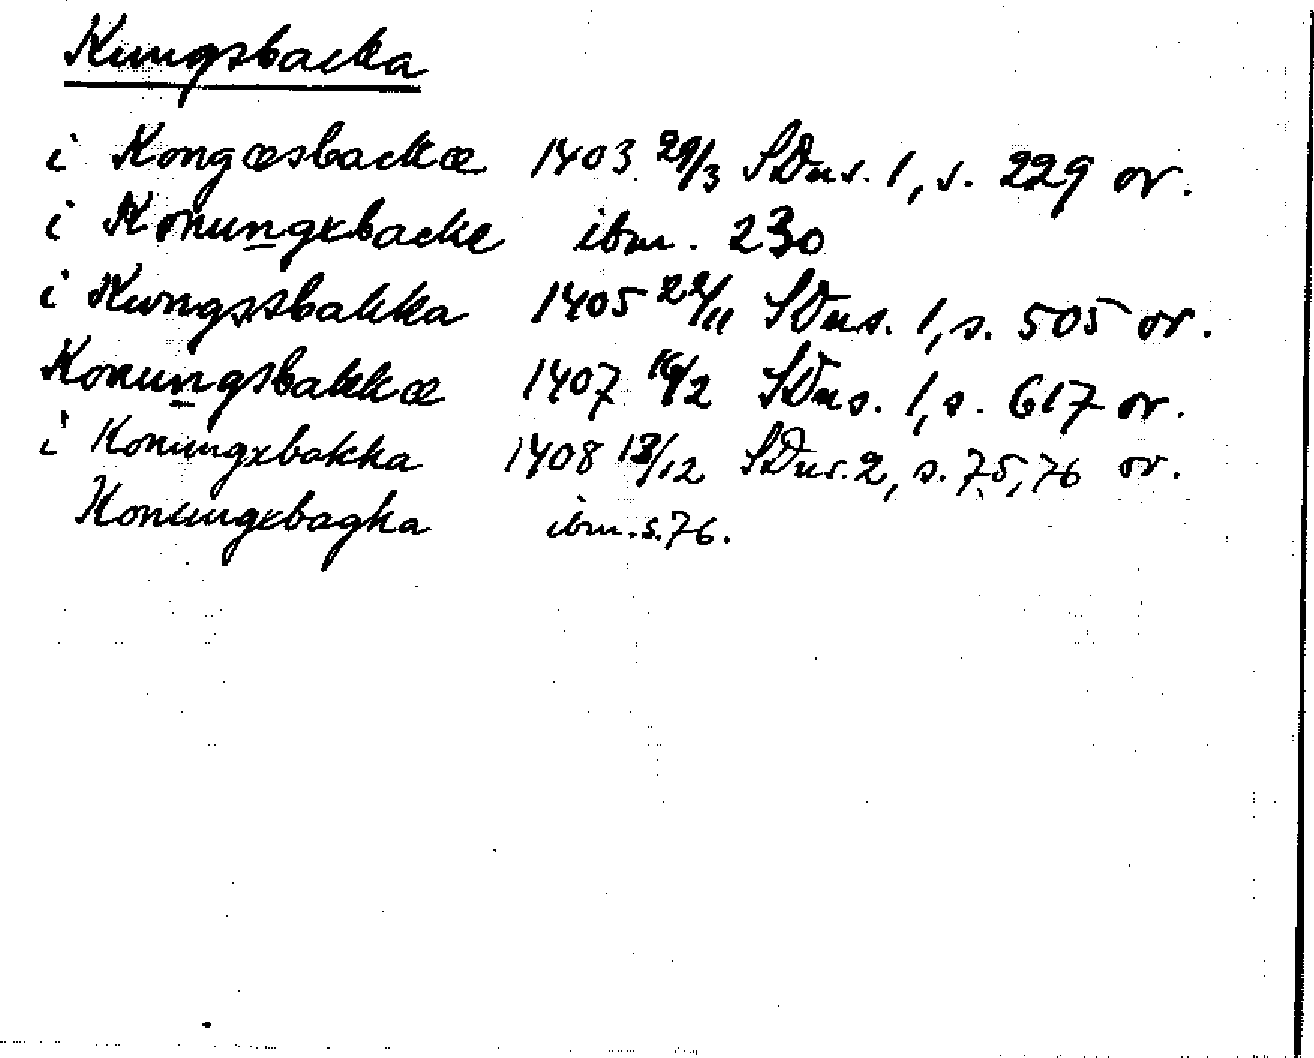 Kungsbacka
i Kongæsbackæ 1403 29/3 SDns. 1, s. 229 or.
i Konungxbacke ibm. 230
i Kungssbakka 1405 22/11 SDns. 1, s. 505 or.
Konungsbakkæ 1407 16/2 SDns. 1, s. 617 or.
i Konungxbakka 1408 13/12 SDns. 2, s. 75, 76 or.
Konungxbagka ibm. s. 76.